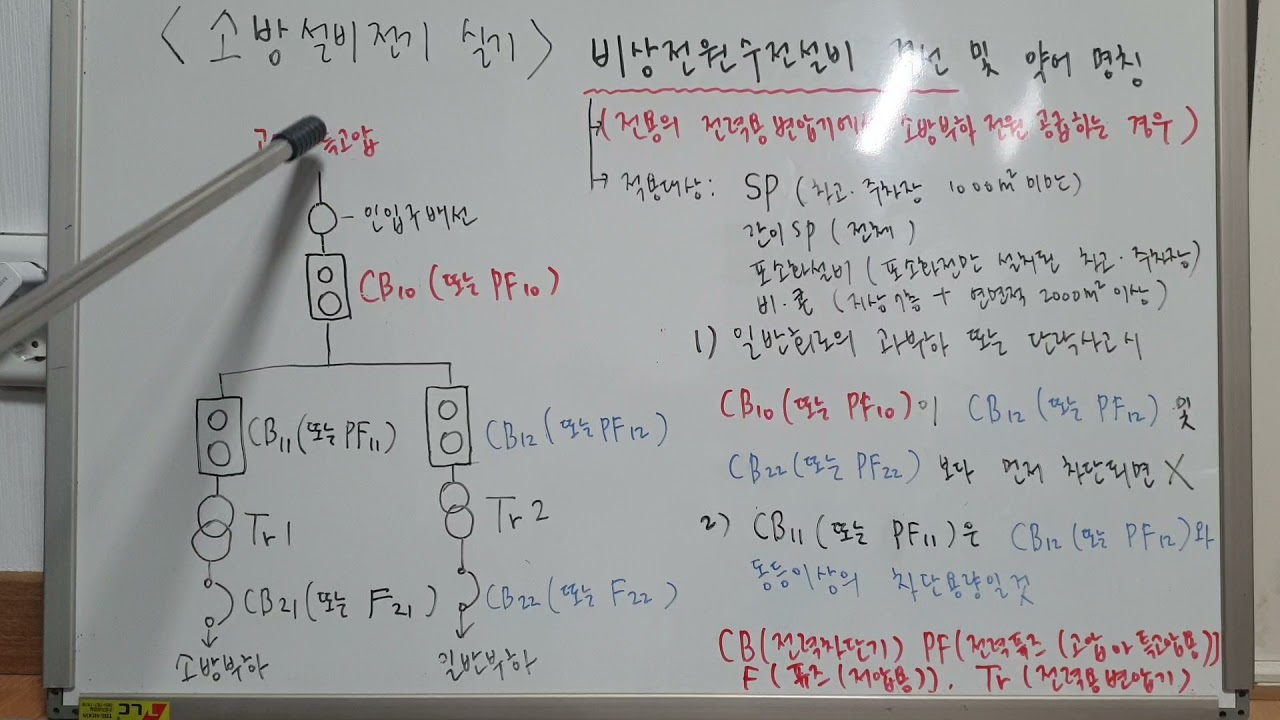 <소방설비전기 실기>
비상전원수전설비 및 약어 명칭
(전용의 전력용변압기에서 소방부하 전원공급하는 경우)
적용대상: SP (차고·주차장 1000m² 미만)
간이SP (전체)
포소화설비 (포소화전만 설치된 차고·주차장)
비·콘 (지상7층 + 연면적 2000m² 이상)
1) 일반회로의 과부하 또는 단락사고시
CB10(또는 PF10)이 CB12 (또는 PF12) 및
CB22(또는 PF22) 보다 먼저 차단되면 X
2) CB11(또는 PF11)은 CB12(또는 PF12)와
동등이상의 차단용량일것
CB(전력차단기) PF(전력퓨즈(고압 아 특고압용))
F(퓨즈(저압용)). Tr(전력용변압기)
특고압
인입구배선
CB10 (또는 PF10)
CB11(또는 PF11)
CB12 (또는 PF12)
Tr1
Tr2
CB21(또는 F21)
CB22(또는 F22)
소방부하
일반부하